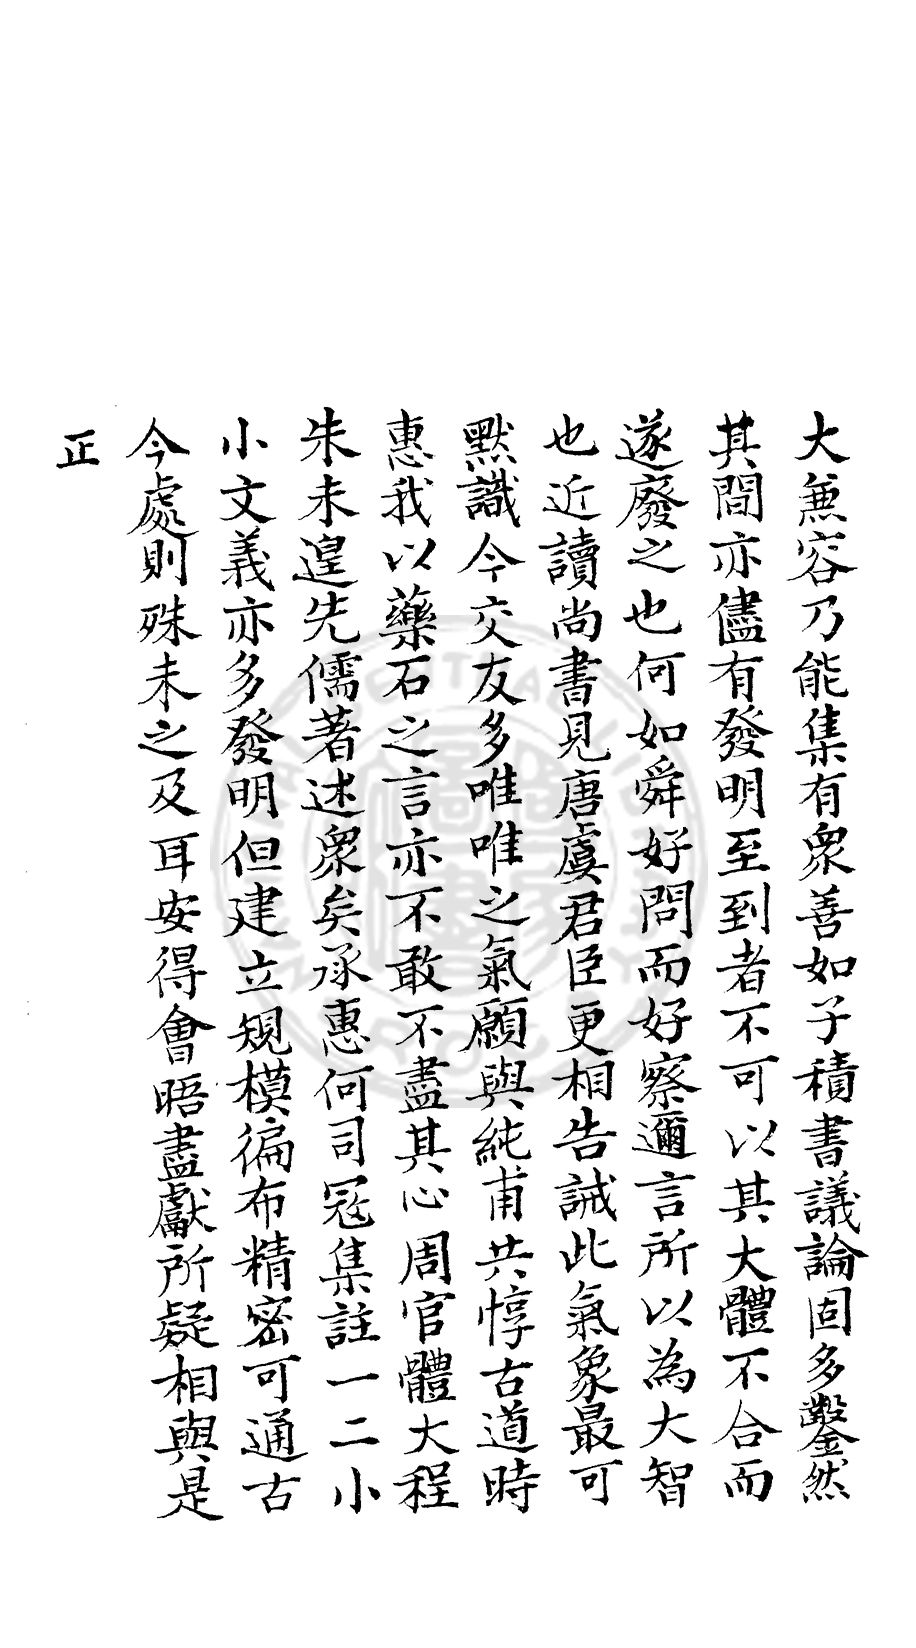 大兼容乃能集有衆善如子積書議論固多鑿然
其間亦儘有發明至到者不可以其大體不合而
遂廢之也何如舜好問而好察邇言所以為大智
也近讀尚書見唐虞君臣更相告誡此氣象最可
默識今交友多唯唯之氣願與純甫共惇古道時
惠我以藥石之言亦不敢不盡其心周官體大程
朱未遑先儒著述衆矣承惠何司寇集註一二小
小文義亦多發明但建立規模徧布精密可通古
今處則殊未之及耳安得會晤盡獻所疑相與是
正